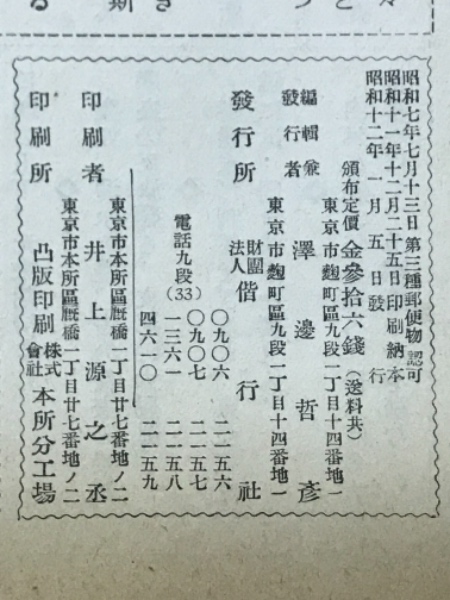 昭和七年七月十三日第三種郵便物認可
昭和十一年十二月二十五日印刷納本
昭和十二年一月五日發行
頒布定價金參拾六錢(送料共)
東京市麴町區九段一丁目十四番地一
編輯兼發行者 澤邊哲彥
東京市麴町區九段一丁目十四番地一
發行所 財團法人偕行社
電話九段(33)
〇九〇六 二一五六
〇九〇七 二一五七
一三六一 二一五八
四六一〇 二一五九
東京市本所區厩橋一丁目廿七番地ノ二
印刷者 井上源之丞
東京市本所區厩橋一丁目廿七番地ノ二
印刷所 凸版印刷株式會社本所分工場